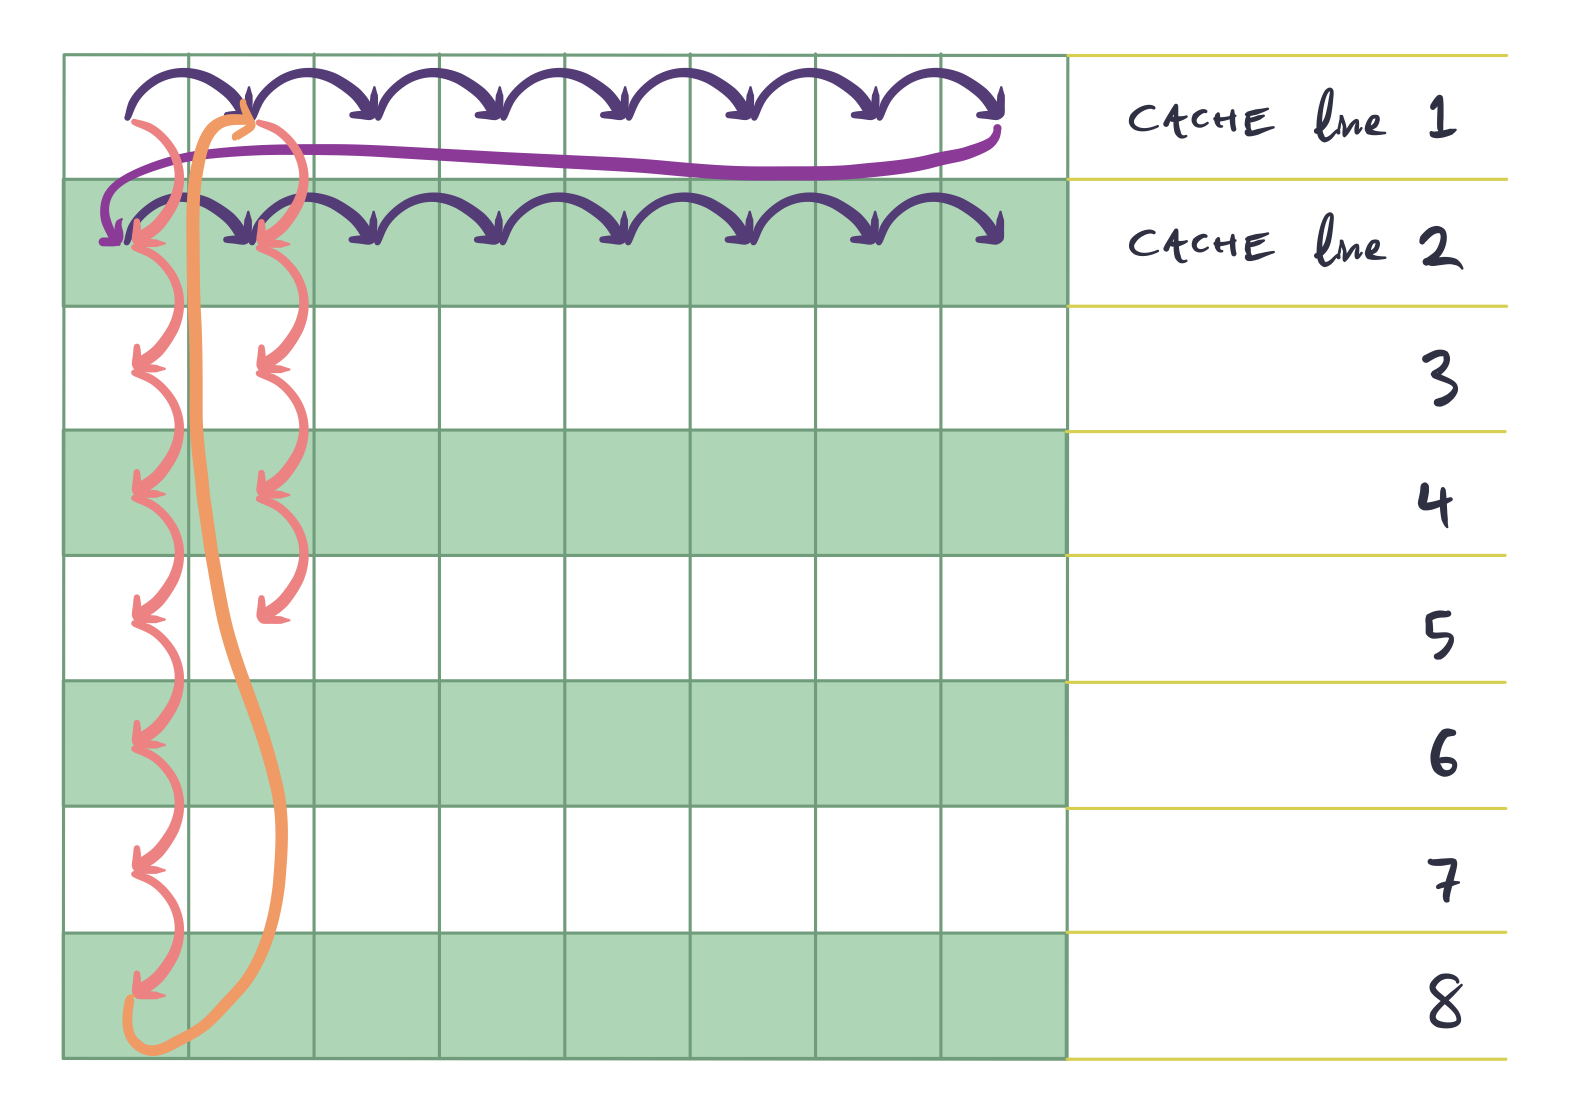 CACHE line 1
CACHE line 2
3
4
5
6
7
8